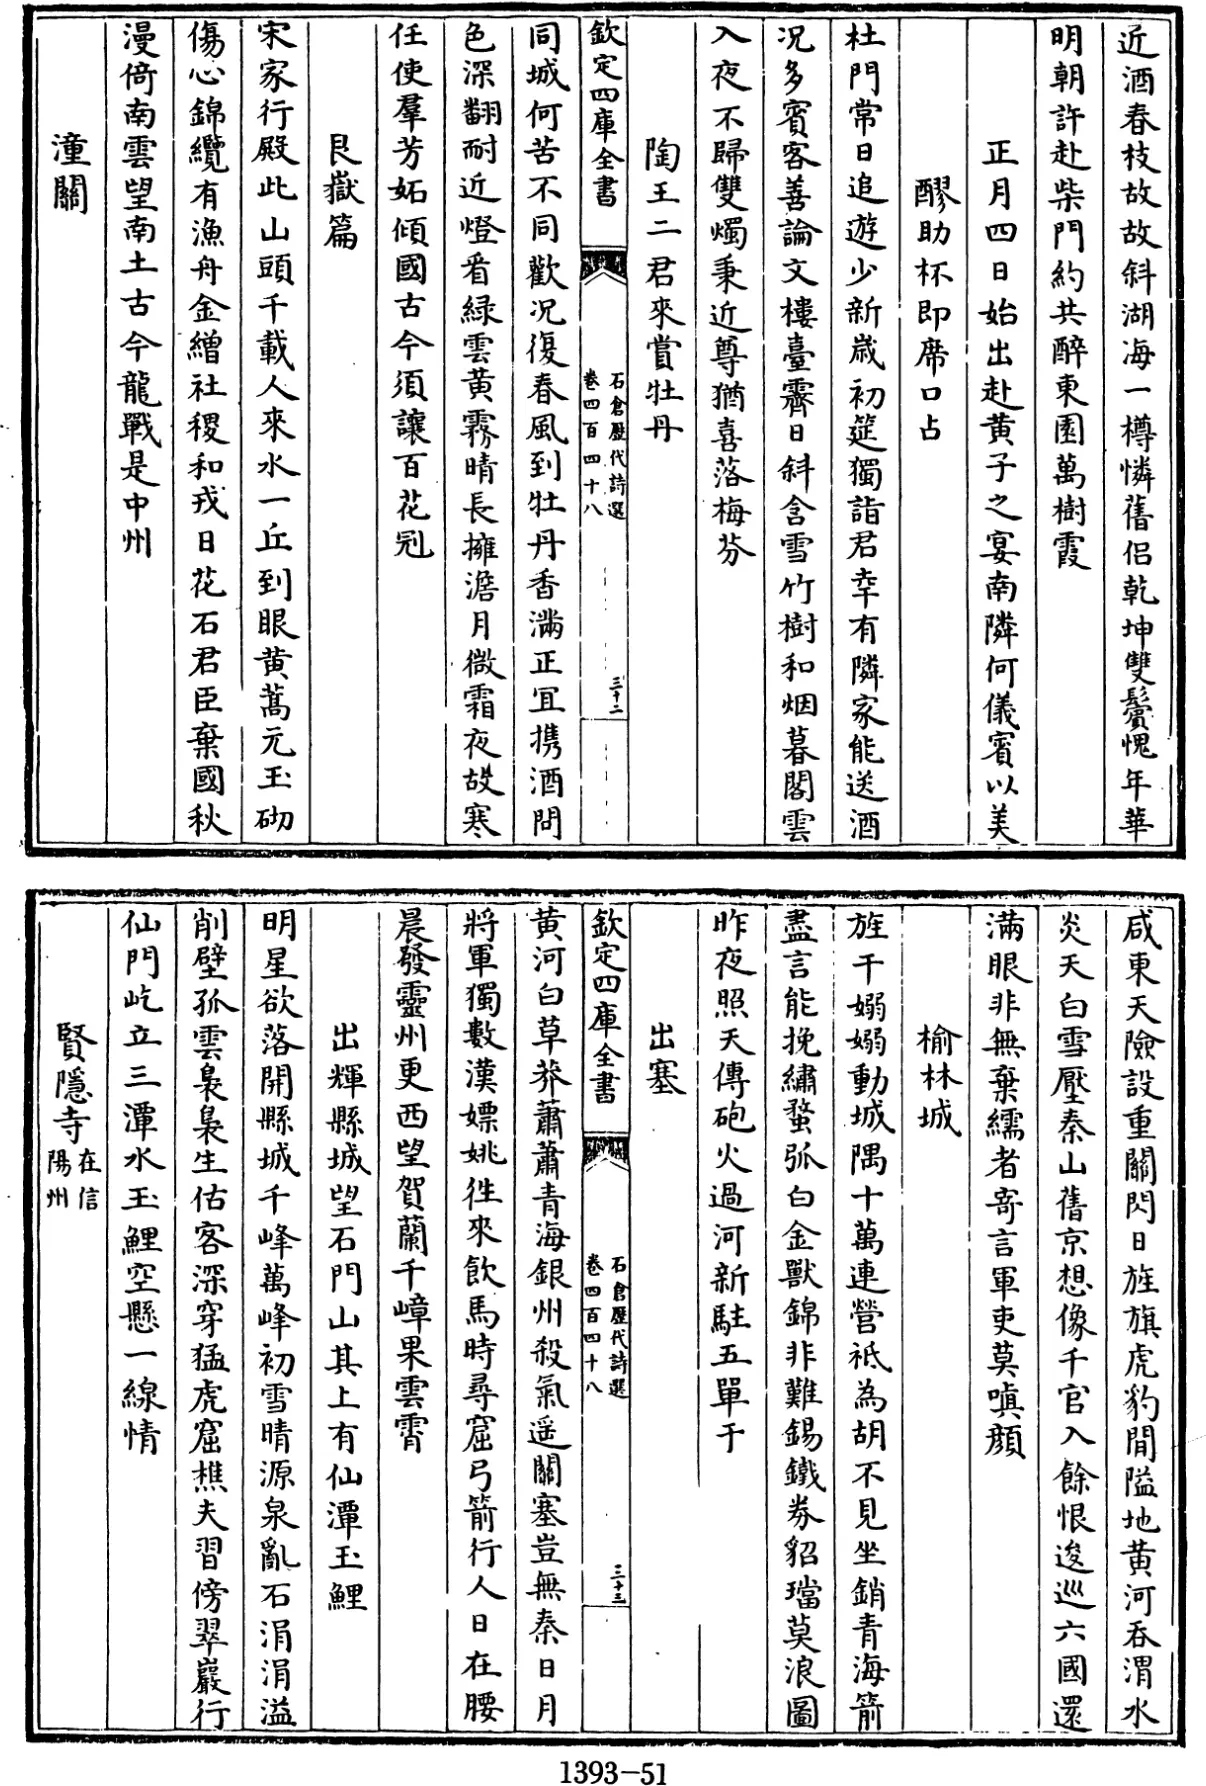 近酒春枝故故斜湖海一樽憐舊侣乾坤雙鬢愧年華
明朝許赴柴門約共醉東園萬樹霞
正月四日始出赴黄子之宴南隣何儀賓以美
醪助杯即席口占
杜門常日追遊少新嵗初筵獨詣君幸有隣家能送酒
况多賓客善論文樓臺霽日斜含雪竹樹和烟暮閣雲
入夜不歸雙燭秉近尊猶喜落梅芬
陶王二君來賞牡丹
欽定四庫全書
石倉歴代詩選
卷四百四十八
三十二
同城何苦不同歡况復春風到牡丹香滿正宜携酒問
色深翻耐近燈看緑雲黄霧晴長擁澹月微霜夜故寒
任使羣芳妬傾國古今須讓百花冠
艮嶽篇
宋家行殿此山頭千載人來水一丘到眼黄蒿元玉砌
傷心錦纜有漁舟金繒社稷和戎日花石君臣棄國秋
漫倚南雲望南土古今龍戰是中州
潼關
咸東天險設重關閃日旌旗虎豹閒隘地黄河吞渭水
炎天白雪壓秦山舊京想像千官入餘恨逡巡六國還
滿眼非無棄繻者寄言軍吏莫嗔顔
榆林城
旌干嫋嫋動城隅十萬連營祇為胡不見坐銷青海箭
盡言能挽繡蝥弧白金獸錦非難錫鐵券貂璫莫浪圖
昨夜照天傳砲火過河新駐五單于
出塞
欽定四庫全書
石倉歴代詩選
卷四百四十八
三十三
黄河白草莽蕭蕭青海銀州殺氣遥關塞豈無秦日月
將軍獨數漢嫖姚徃來飲馬時尋窟弓箭行人日在腰
晨發靈州更西望賀蘭千嶂果雲霄
出輝縣城望石門山其上有仙潭玉鯉
明星欲落開縣城千峰萬峰初雪晴源泉亂石涓涓溢
削壁孤雲裊裊生估客深穿猛虎窟樵夫習傍翠巖行
仙門屹立三潭水玉鯉空懸一線情
賢隱寺在信
陽州
1393-51